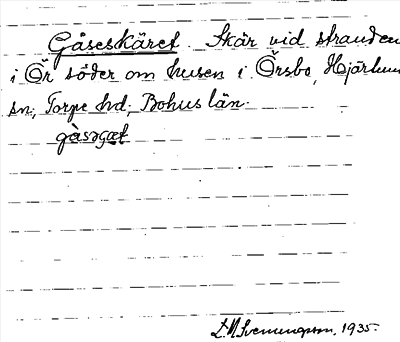 Gåseskäret. Skär vid stranden
i Ör söder om husen i Örsbo, Hjärtum
sn, Torpe hd, Bohus län.
gåsəgæt
1935.